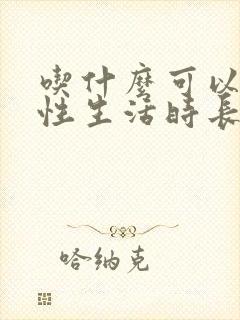 喫什麼可以
性生活時長
哈纳克